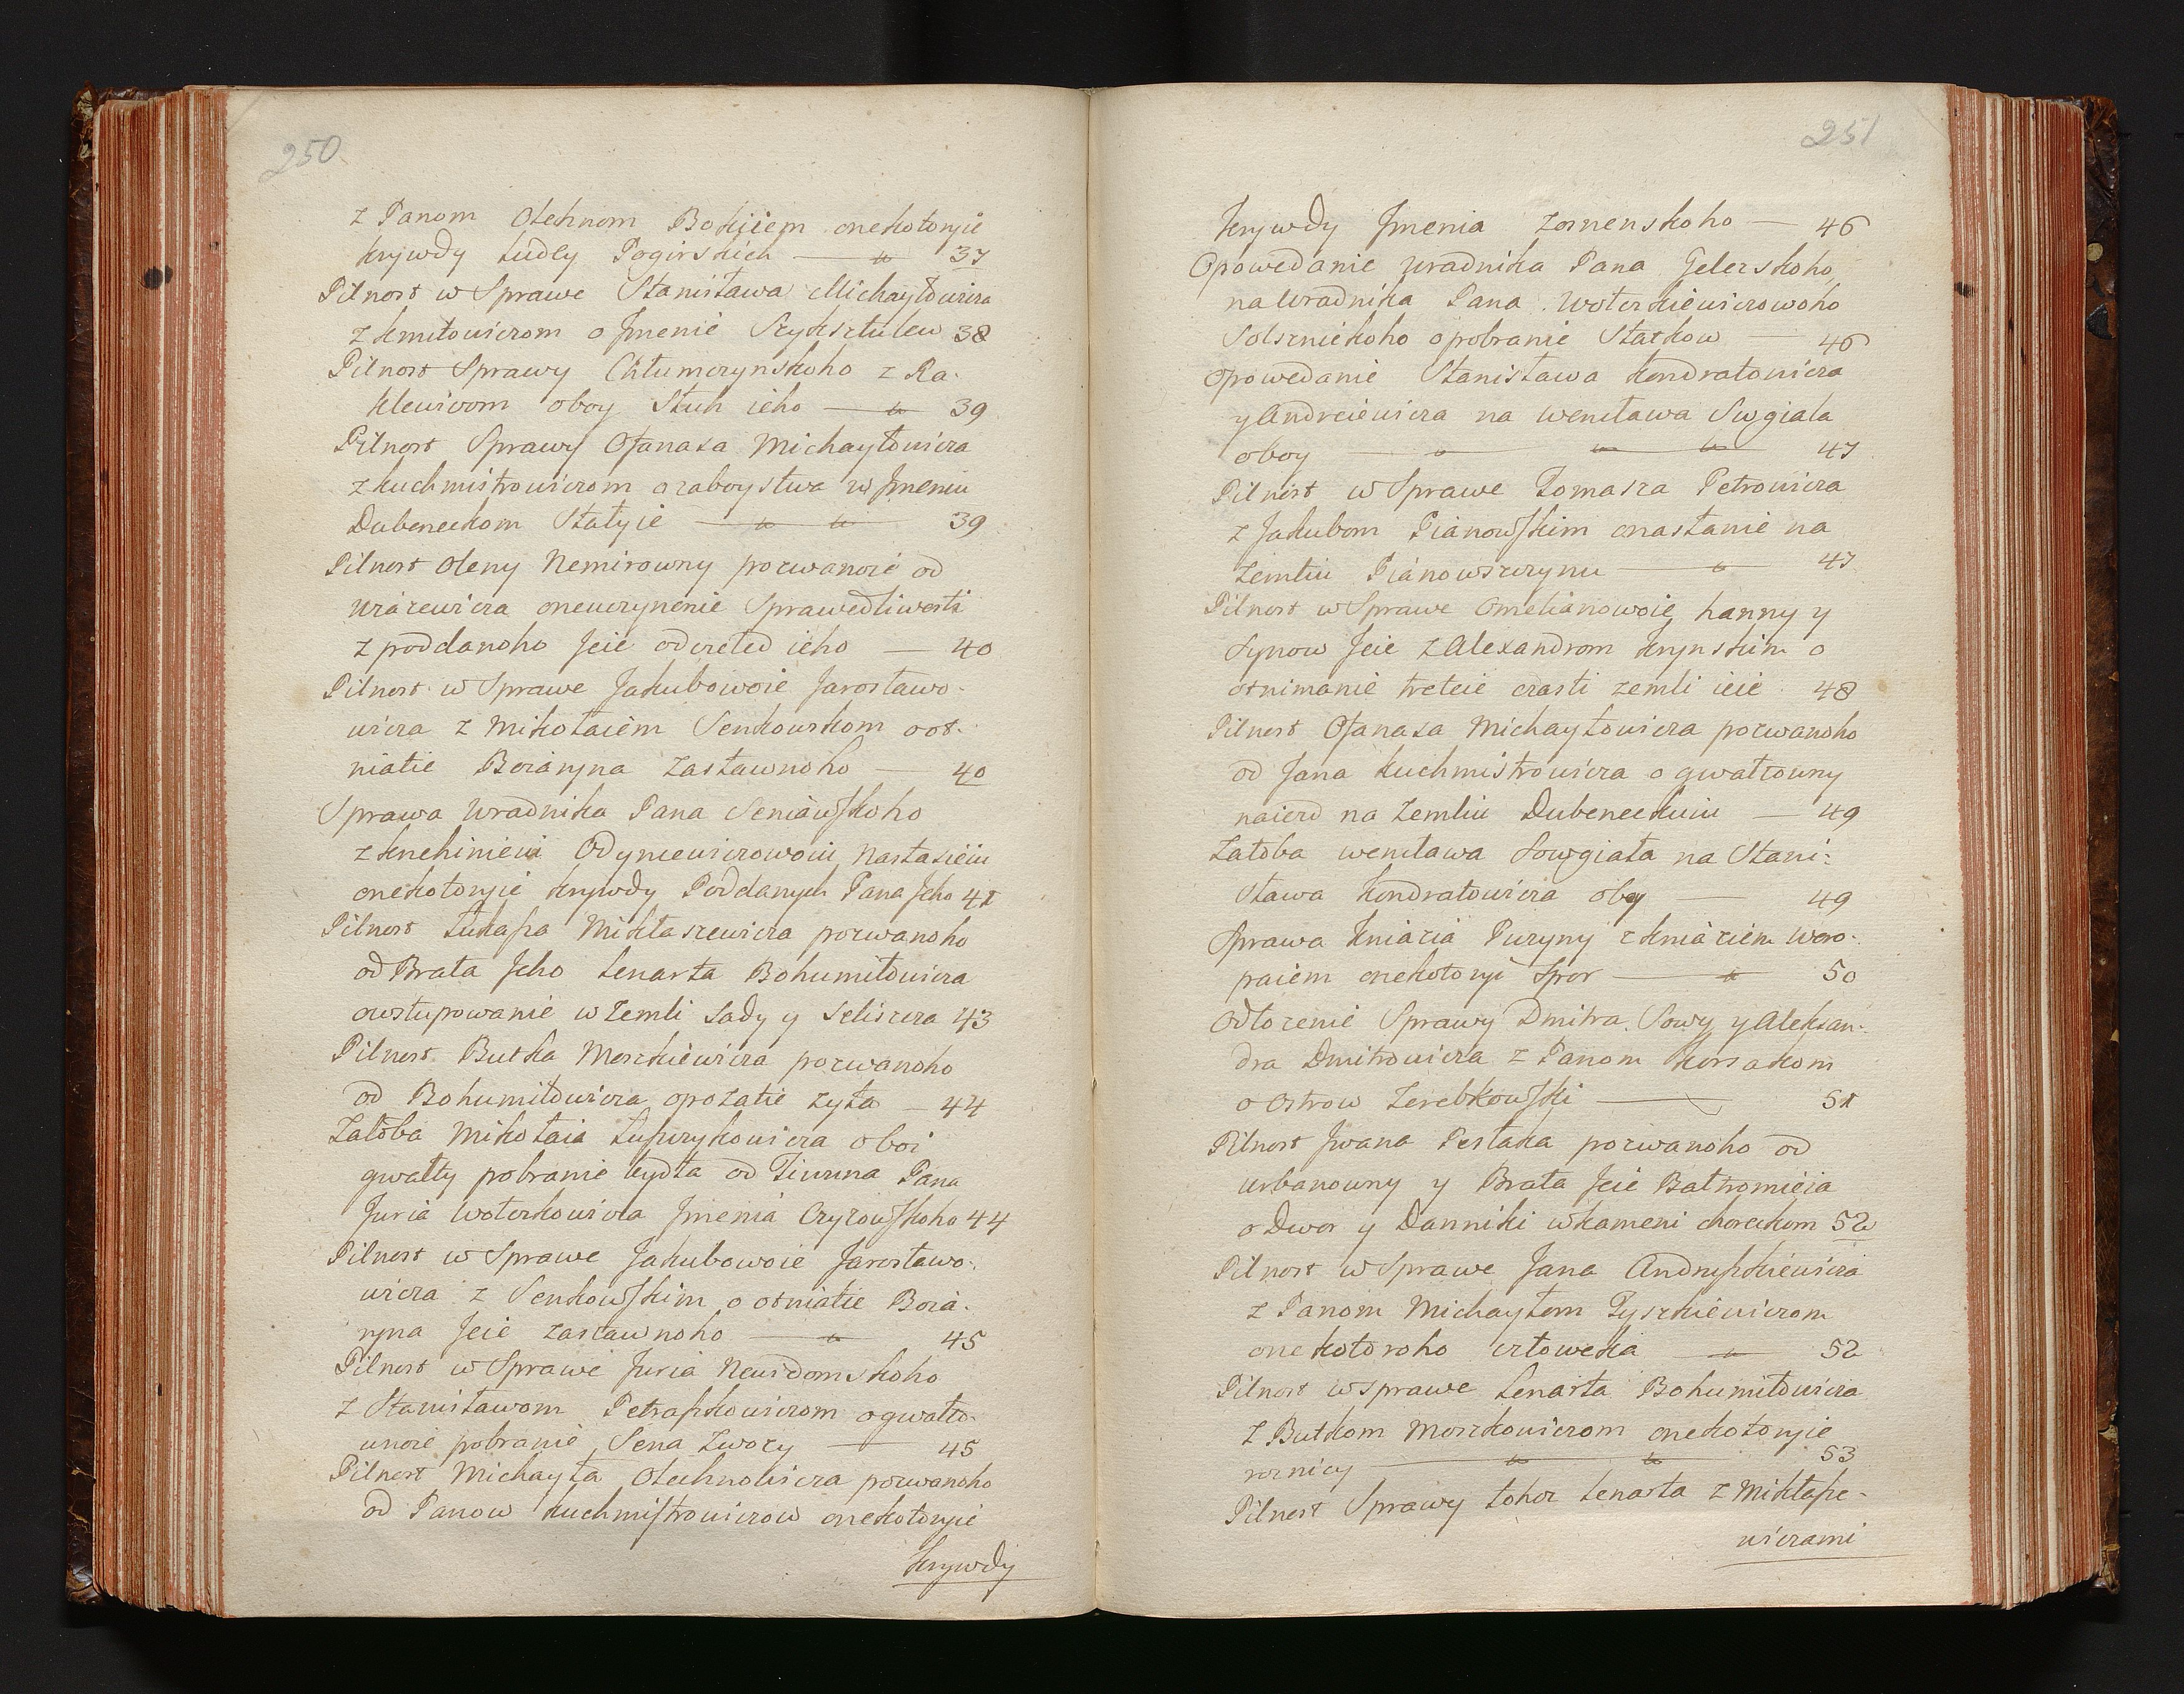 250.
z Panom Olechnom Bokiiem onekotoryie
krywdy Ludey Pogirskich — " 37
Pilnost w Sprawe Stanisława Michayłowicza
z kmitowiczom o Jmenie Szyksztulew 38
Pilnost Sprawy Chłumczynskoho z Ra-
klewicom oboy Sluh ieho — " 39
Pilnost Sprawy Ofanasa Michayłowicza
z kuchmistrowiczom o zaboystwa w Jmeniu
Dubeneckom Statyie — " " 39
Pilnost Oleny Nemirowny pozwanoie od
oneuczynenie Sprawedliwosti
z poddanoho Jeie ieho — 40
Pilnost w Sprawe Jakubowoie Jarosławo-
wicza z Mikołaiem Senkowskom oot-
niatie Boiaryna Zastawnoho — 40
Sprawa Uradnika Pana Seniawskoho
z knehinieiu Odyncewiczowoiu Nastasieiu
onekotoryie krywdy Poddanych Pana Jeho 41
Pilnost Łukasza Mikłaszewicza pozwanoho
od Brata Jeho Lenarta Bohumiłowicza
owstupowanie w Zemli Sady y Seliszcza 43
Pilnost Butka Moszkiewicza pozwanoho
od Bohumiłowicza opożatie żyta — 44
Załoba Mikołaia oboi
gwałty pobranie bydła od Tiwuna Pana
Juria Wołczkowicza Jmenia Czyzowskoho 44
Pilnost w Sprawe Jakubowoie Jarosławo-
wicza z Senkowskim o otniatie Boia-
ryna Jeie zastawnoho — " 45
Pilnost w Sprawe Juria Newidomskoho
z Stanisławom Petraszkowiczom ogwałto-
wnoie pobranie Sena Zwozy — 45
Pilnost Michayła Olechnowicza pozwanoho
od Panow kuchmistrowiczow onekotoryie
krywdy
251
krywdy Jmenia Zornenskoho — 46
Opowedanie Uradnika Pana Gelerskoho
na Uradnika Pana Wołczkiewiczowoho
Solecznickoho o pobranie Statkow — 46
Opowedanie Stanisława kondratowicza
y Andreiewicza na Wencława Swgiała
oboy — " " " 47
Pilnost w Sprawe Tomasza Petrowicza
z Jakubom Pianowskim onasłanie na
Zemliu Pianowszczynu — " 47
Pilnost w Sprawe Omelianowoie hanny y
Synow Jeie z Alexandrom krynskim o
otnimanie treteie czasti zemli ieie 48
Pilnost Ofanasa Michayłowicza pozwanoho
od Jana kuchmistrowicza o gwałtowny
naiezd na Zemliu Dubeneckuiu — 49
Załoba Wencława Sowgiała na Stani-
sława kondratowicza oboy — 49
Sprawa kniazia Puzyny z kniaziem Woro-
paiem onekotoryi Spor — " 50
Odłozenie Sprawy Dmitra Sowy y Aleksan-
dra Dmitrowicza z Panom korsakom
o Ostrow Zerebkowski — 51
Pilnost Jwana Pestaka pozwanoho od
Urbanowny y Brata Jeie Bałtromieia
o Dwor y Danniki w kameni choreckom 52
Pilnost w Sprawe Jana Andruszkiewicza
z Panom Michayłom Tyszkiewiczom
onekotoroho człoweka — " 52
Pilnost w sprawe Lenarta Bohumiłowicza
z Butkom Moszkowiczom onekotoryie
roznicy — " " 53
Pilnost Sprawy tohoż Lenarta z Mikłasze-
wiczami